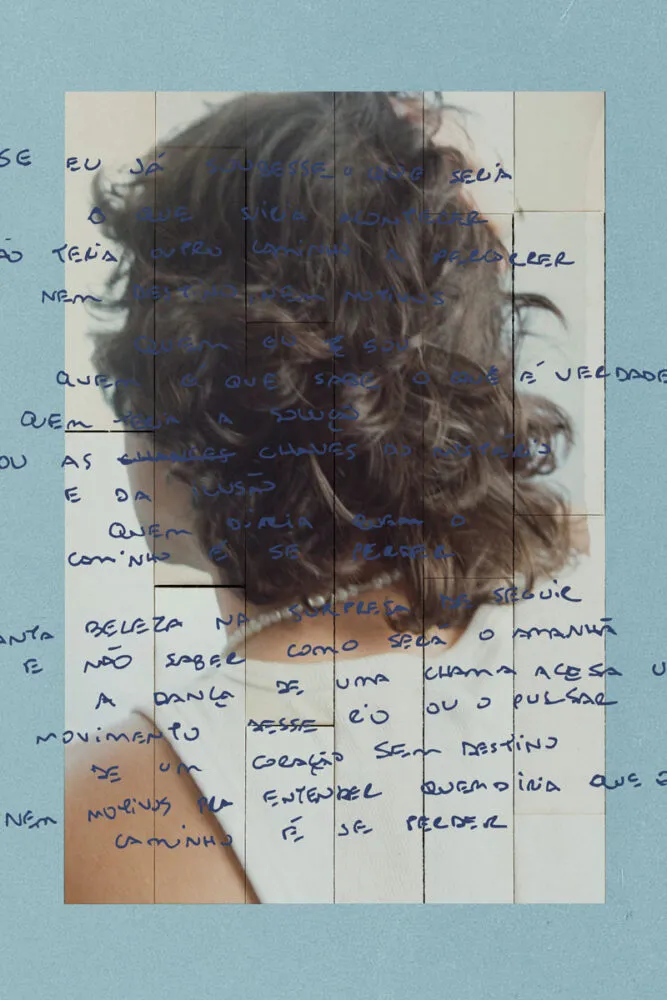 SE EU JÁ SOUBESSE O QUE SERIA
O QUE SIRIA ACONTECER
ÃO TERIA OUTRO CAMINHO A PERCORRER
NEM DESTINO, NEM MOTIVOS
QUEM EU SOU
QUEM É QUE SABE O QUE É VERDADE
QUEM TERIA A SOLUÇÃO
OU AS CHANCES CHAVES DO MISTÉRIO
E DA ILUSÃO
QUEM DIRIA QUEM O
CAMINHO É SE PERDER
ANTA BELEZA NA SURPRESA DE SEGUIR
E NÃO SABER COMO SERÁ O AMANHÃ
A DANÇA DE UMA CHAMA ACESA U
MOVIMENTO DESSE RIO OU O PULSAR
DE UM CORAÇÃO SEM DESTINO
NEM MOTIVOS PRA ENTENDER QUEM DIRIA QUE O
CAMINHO É SE PERDER